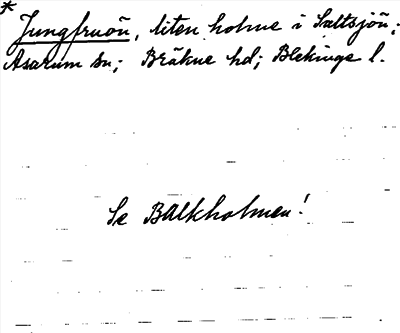 *
Jungfruön, liten holme i Saltsjön;
Asarum sn; Bräkne hd; Blekinge l.
Se Balkholmen!